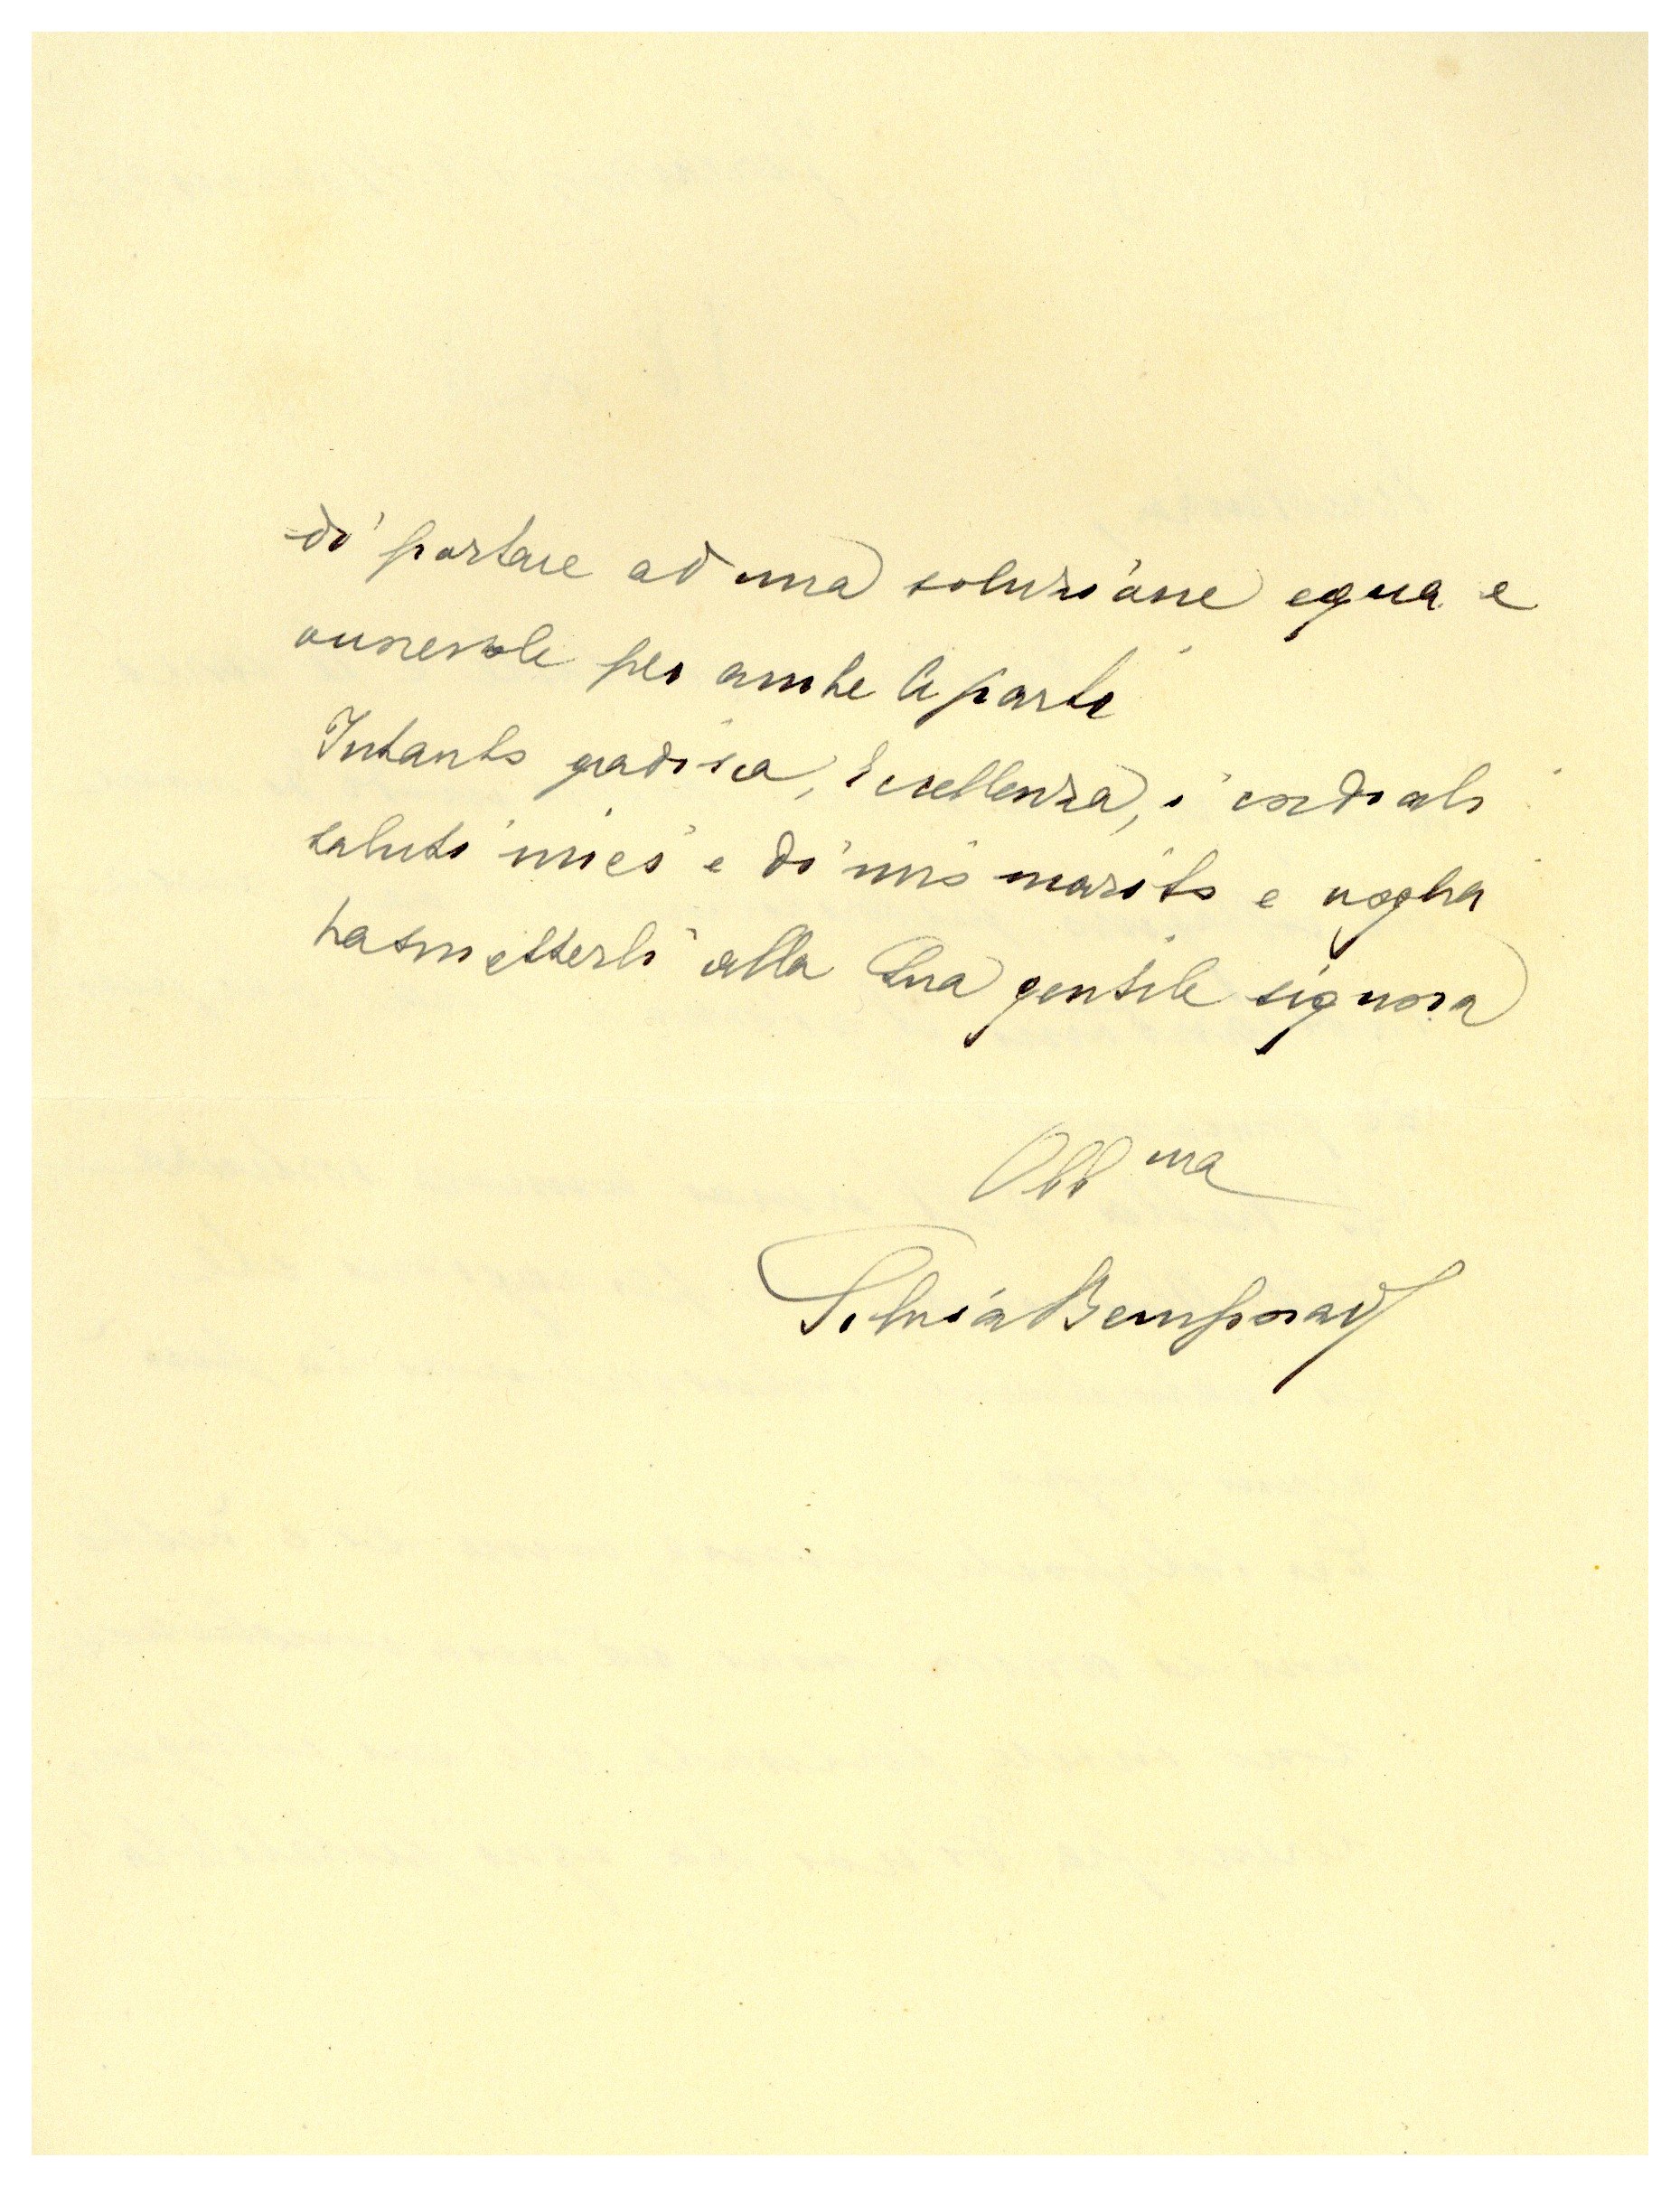 di portare ad una soluzione equa e
onorevole per ambe le parti
Intanto gradisca, Eccellenza, i cordiali
saluti miei e di mio marito e voglia
trasmetterli alla Sua gentile signora
Obb ma
Silvia Bemporad